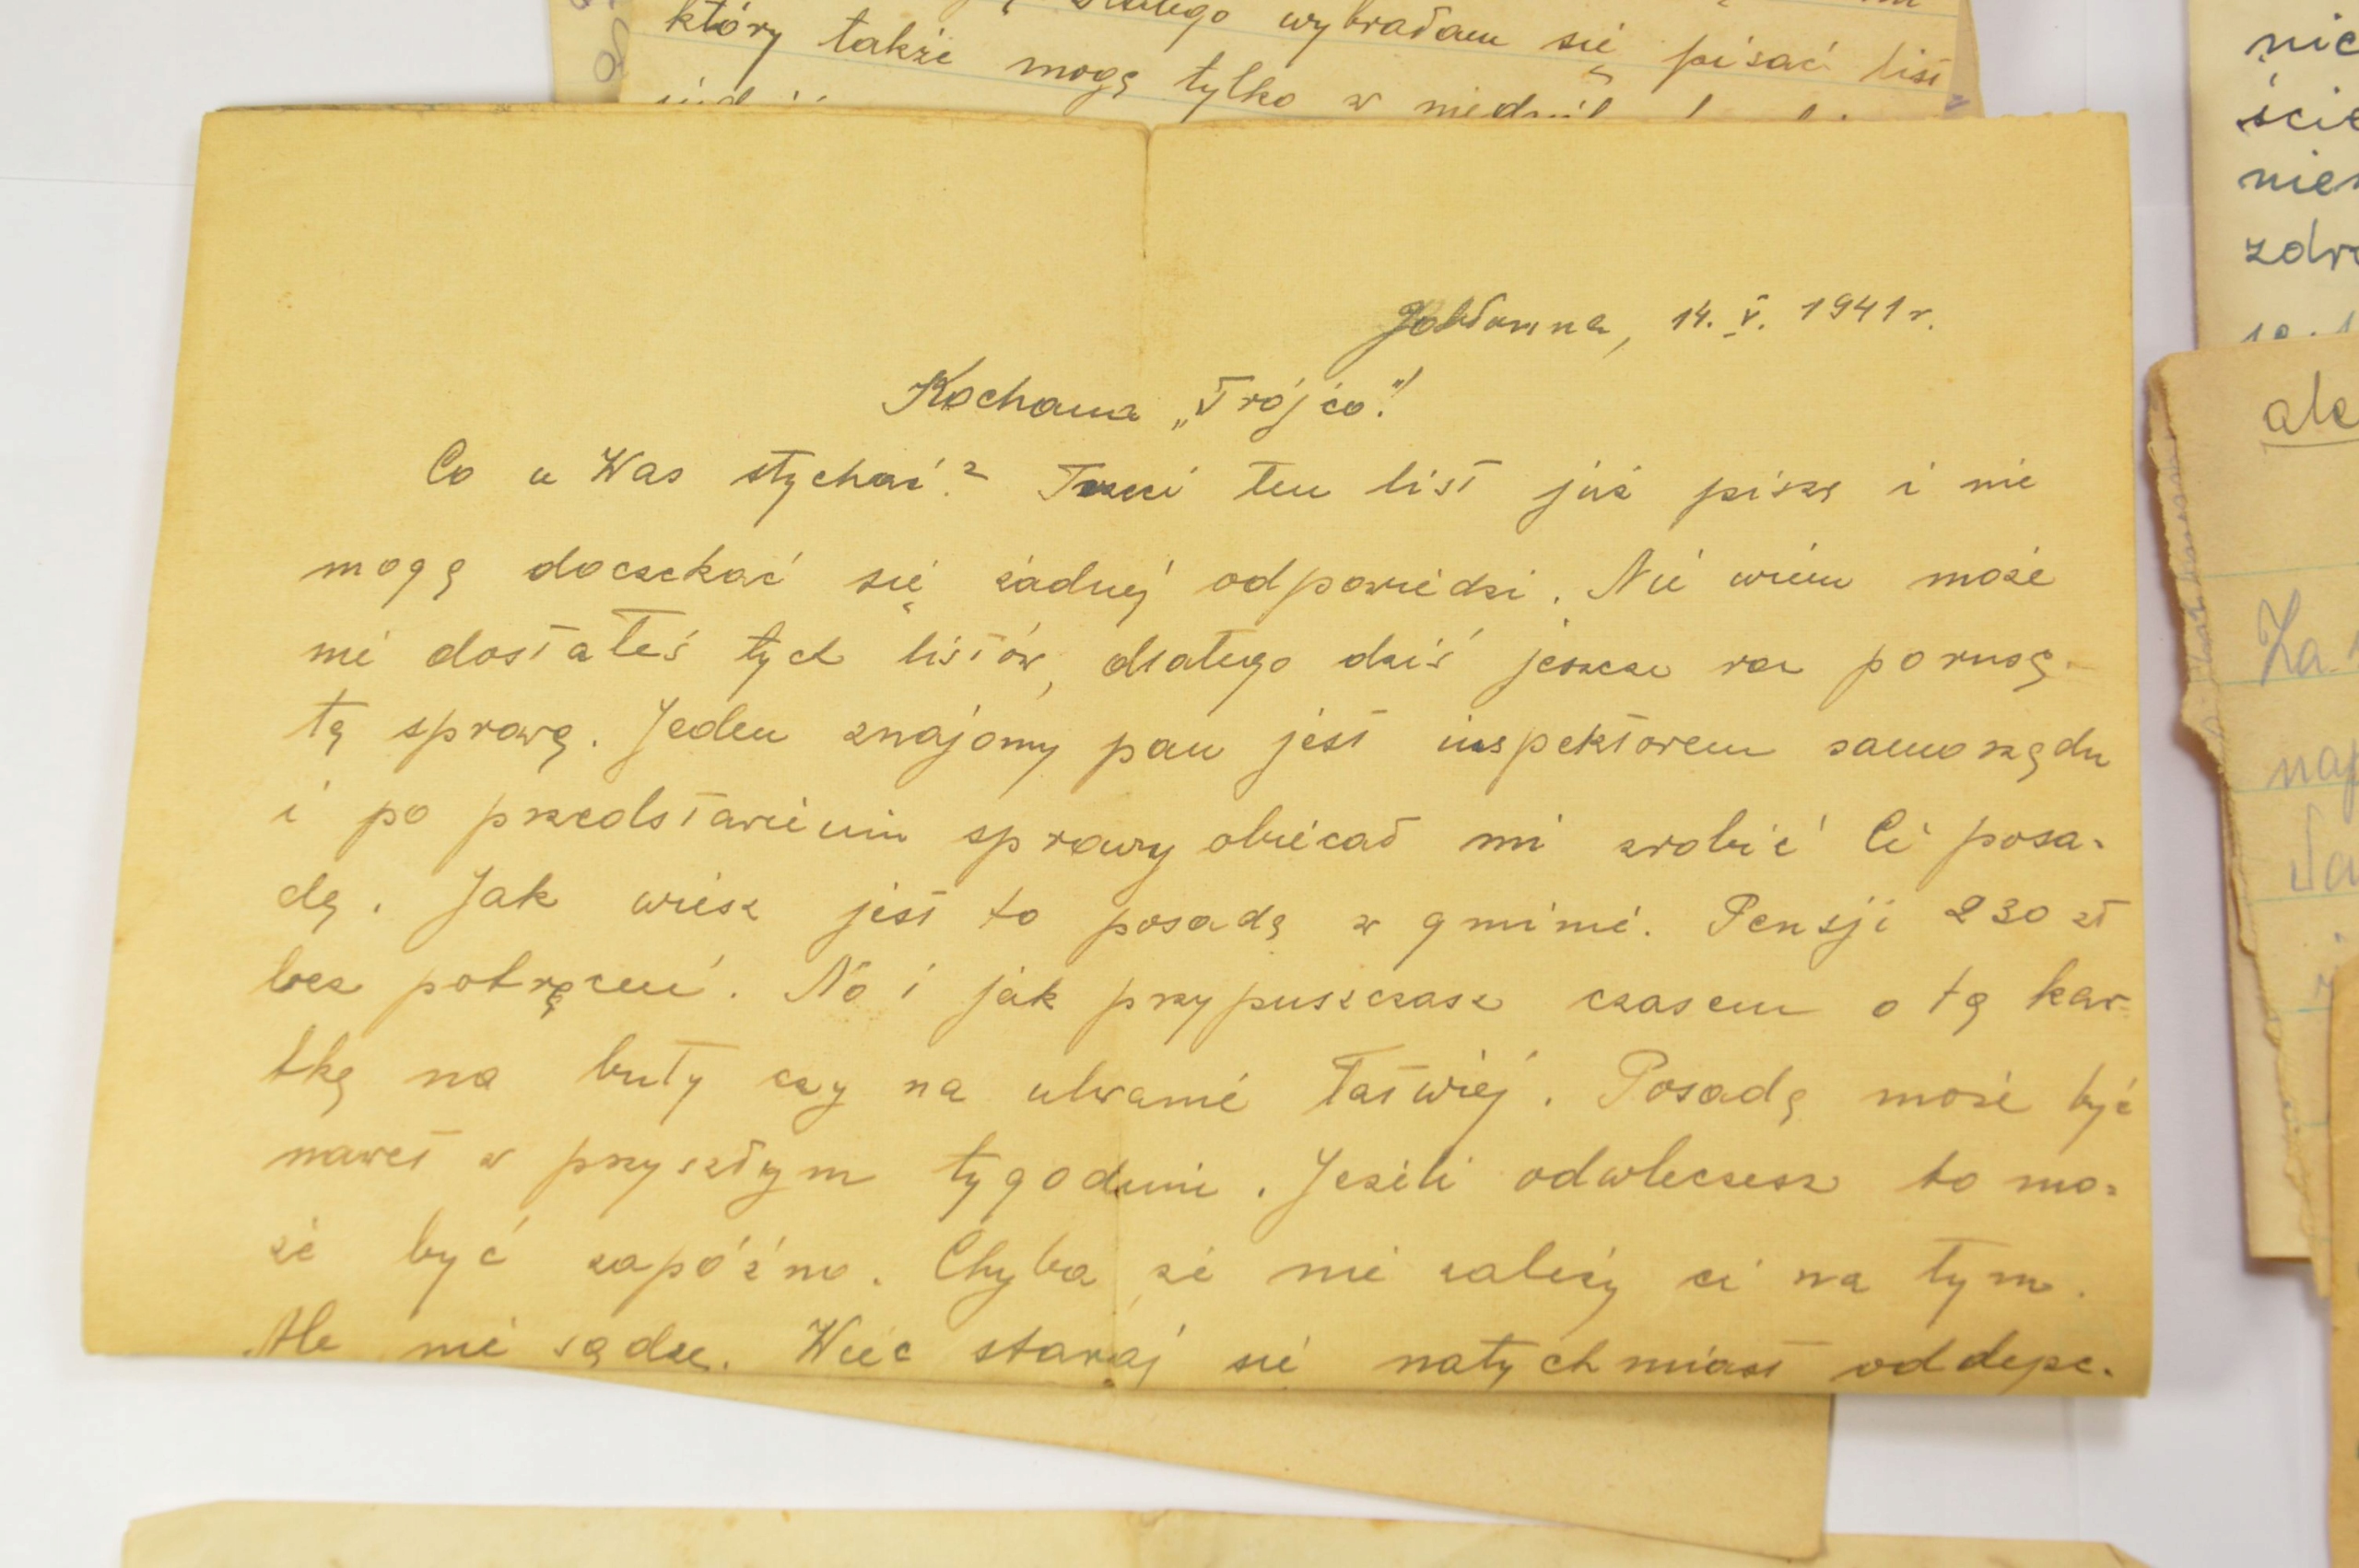 wybrałam się pisać list
który także mogę tylko w
Jabłonna, 14. V. 1941 r.
Kochana „Trójco!”
Co u Was słychać? Trzeci ten list już piszę i nie
mogę doczekać się żadnej odpowiedzi. Nie wiem może
nie dostałeś tych listów, dlatego dziś jeszcze raz poruszę
tę sprawę. Jeden znajomy pan jest inspektorem samorządu
i po przedstawieniu sprawy obiecał mi zrobić Ci posa-
dę. Jak wiesz jest to posadę w gminie. Pensji 230 zł
bez potrąceń. No i jak przypuszczasz czasem o tę kar-
tkę na buty czy na ubranie łatwiej. Posadę może być
nawet w przyszłym tygodniu. Jeżeli odwleczesz to mo-
że być zapóźno. Chyba że nie zależy ci na tym.
Ale nie sądzę. Więc staraj się natychmiast oddepe-
nie
ście
zdro
ale
Za
nap